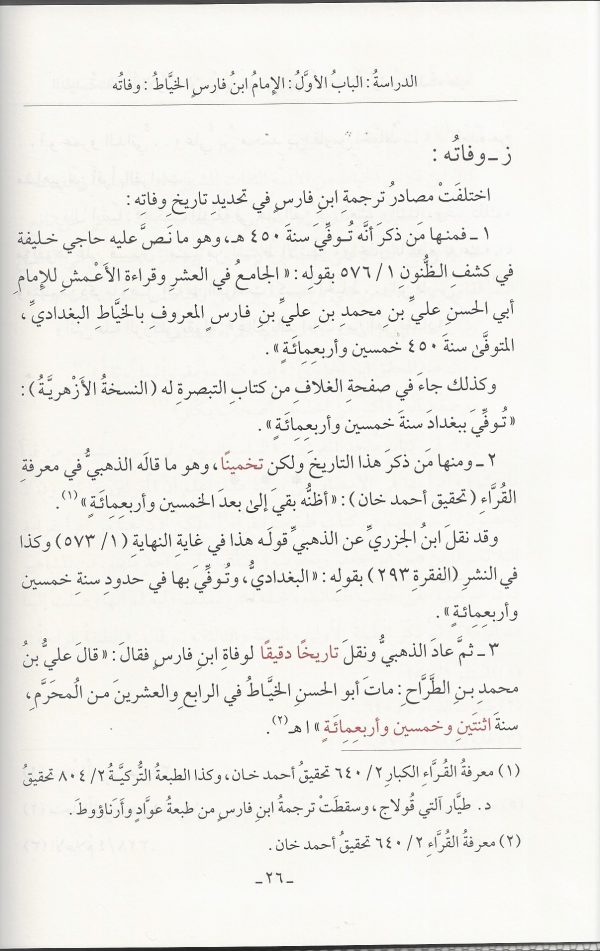 الدراسةُ : البابُ الأوَّلُ : الإمامُ ابنُ فارسٍ الخيَّاطُ : وفاتُه
ز ـ وفاتُه :
اختلفَتْ مصادرُ ترجمةِ ابنِ فارسٍ في تحديدِ تاريخِ وفاتِه :
١ ـ فمنها مَن ذكرَ أنَّه تُوفِّيَ سنةَ ٤٥٠ هـ، وهو ما نَصَّ عليه حاجي خليفة
في كشفِ الظُّنونِ ١/ ٥٧٦ بقولِه : «الجامعُ في العشرِ وقراءةِ الأعْمشِ للإمامِ
أبي الحسنِ عليِّ بنِ محمدِ بنِ عليِّ بنِ فارسٍ المعروفِ بالخيَّاطِ البغداديِّ،
المتوفَّىٰ سنةَ ٤٥٠ خمسين وأربعِمِائَةٍ» .
وكذلك جاءَ في صفحةِ الغلافِ من كتابِ التبصرةِ له (النسخةُ الأزْهريَّةُ) :
«تُوفِّيَ ببغدادَ سنةَ خمسين وأربعِمِائَةٍ» .
٢ ـ ومنها مَن ذكرَ هذا التاريخَ ولكن تخمينًا، وهو ما قالَه الذهبيُّ في معرفةِ
القُرَّاءِ (تحقيق أحمد خان) : «أظنُّه بقيَ إلىٰ بعدَ الخمسين وأربعِمِائَةٍ»(١) .
وقد نقلَ ابنُ الجزريِّ عن الذهبيِّ قولَه هذا في غايةِ النهايةِ (١/ ٥٧٣) وكذا
في النشرِ (الفقرة ٢٩٣) بقولِه : «البغداديُّ، وتُوفِّيَ بها في حدودِ سنةِ خمسين
وأربعِمِائةٍ» .
٣ ـ ثمَّ عادَ الذهبيُّ ونقلَ تاريخًا دقيقًا لوفاةِ ابنِ فارسٍ فقالَ : «قالَ عليُّ بنُ
محمدِ بنِ الطَّرَّاحِ : ماتَ أبو الحسنِ الخيَّاطُ في الرابعِ والعشرينَ من المُحرَّمِ،
سنةَ اثنتَينِ وخمسين وأربعِمِائَةٍ» اهـ(٢) .
(١) معرفةُ القُرَّاءِ الكبارِ ٢/ ٦٤٠ تحقيقُ أحمد خان، وكذا الطبعةُ التُّركيَّةُ ٢/ ٨٠٤ تحقيقُ
د. طيَّار آلتي قُولاج، وسقطَتْ ترجمةُ ابنِ فارسٍ من طبعةِ عوَّادٍ وأرناؤوطَ.
(٢) معرفةُ القُرَّاءِ ٢/ ٦٤٠ تحقيقُ أحمد خان.
ـ ٢٦ ـ